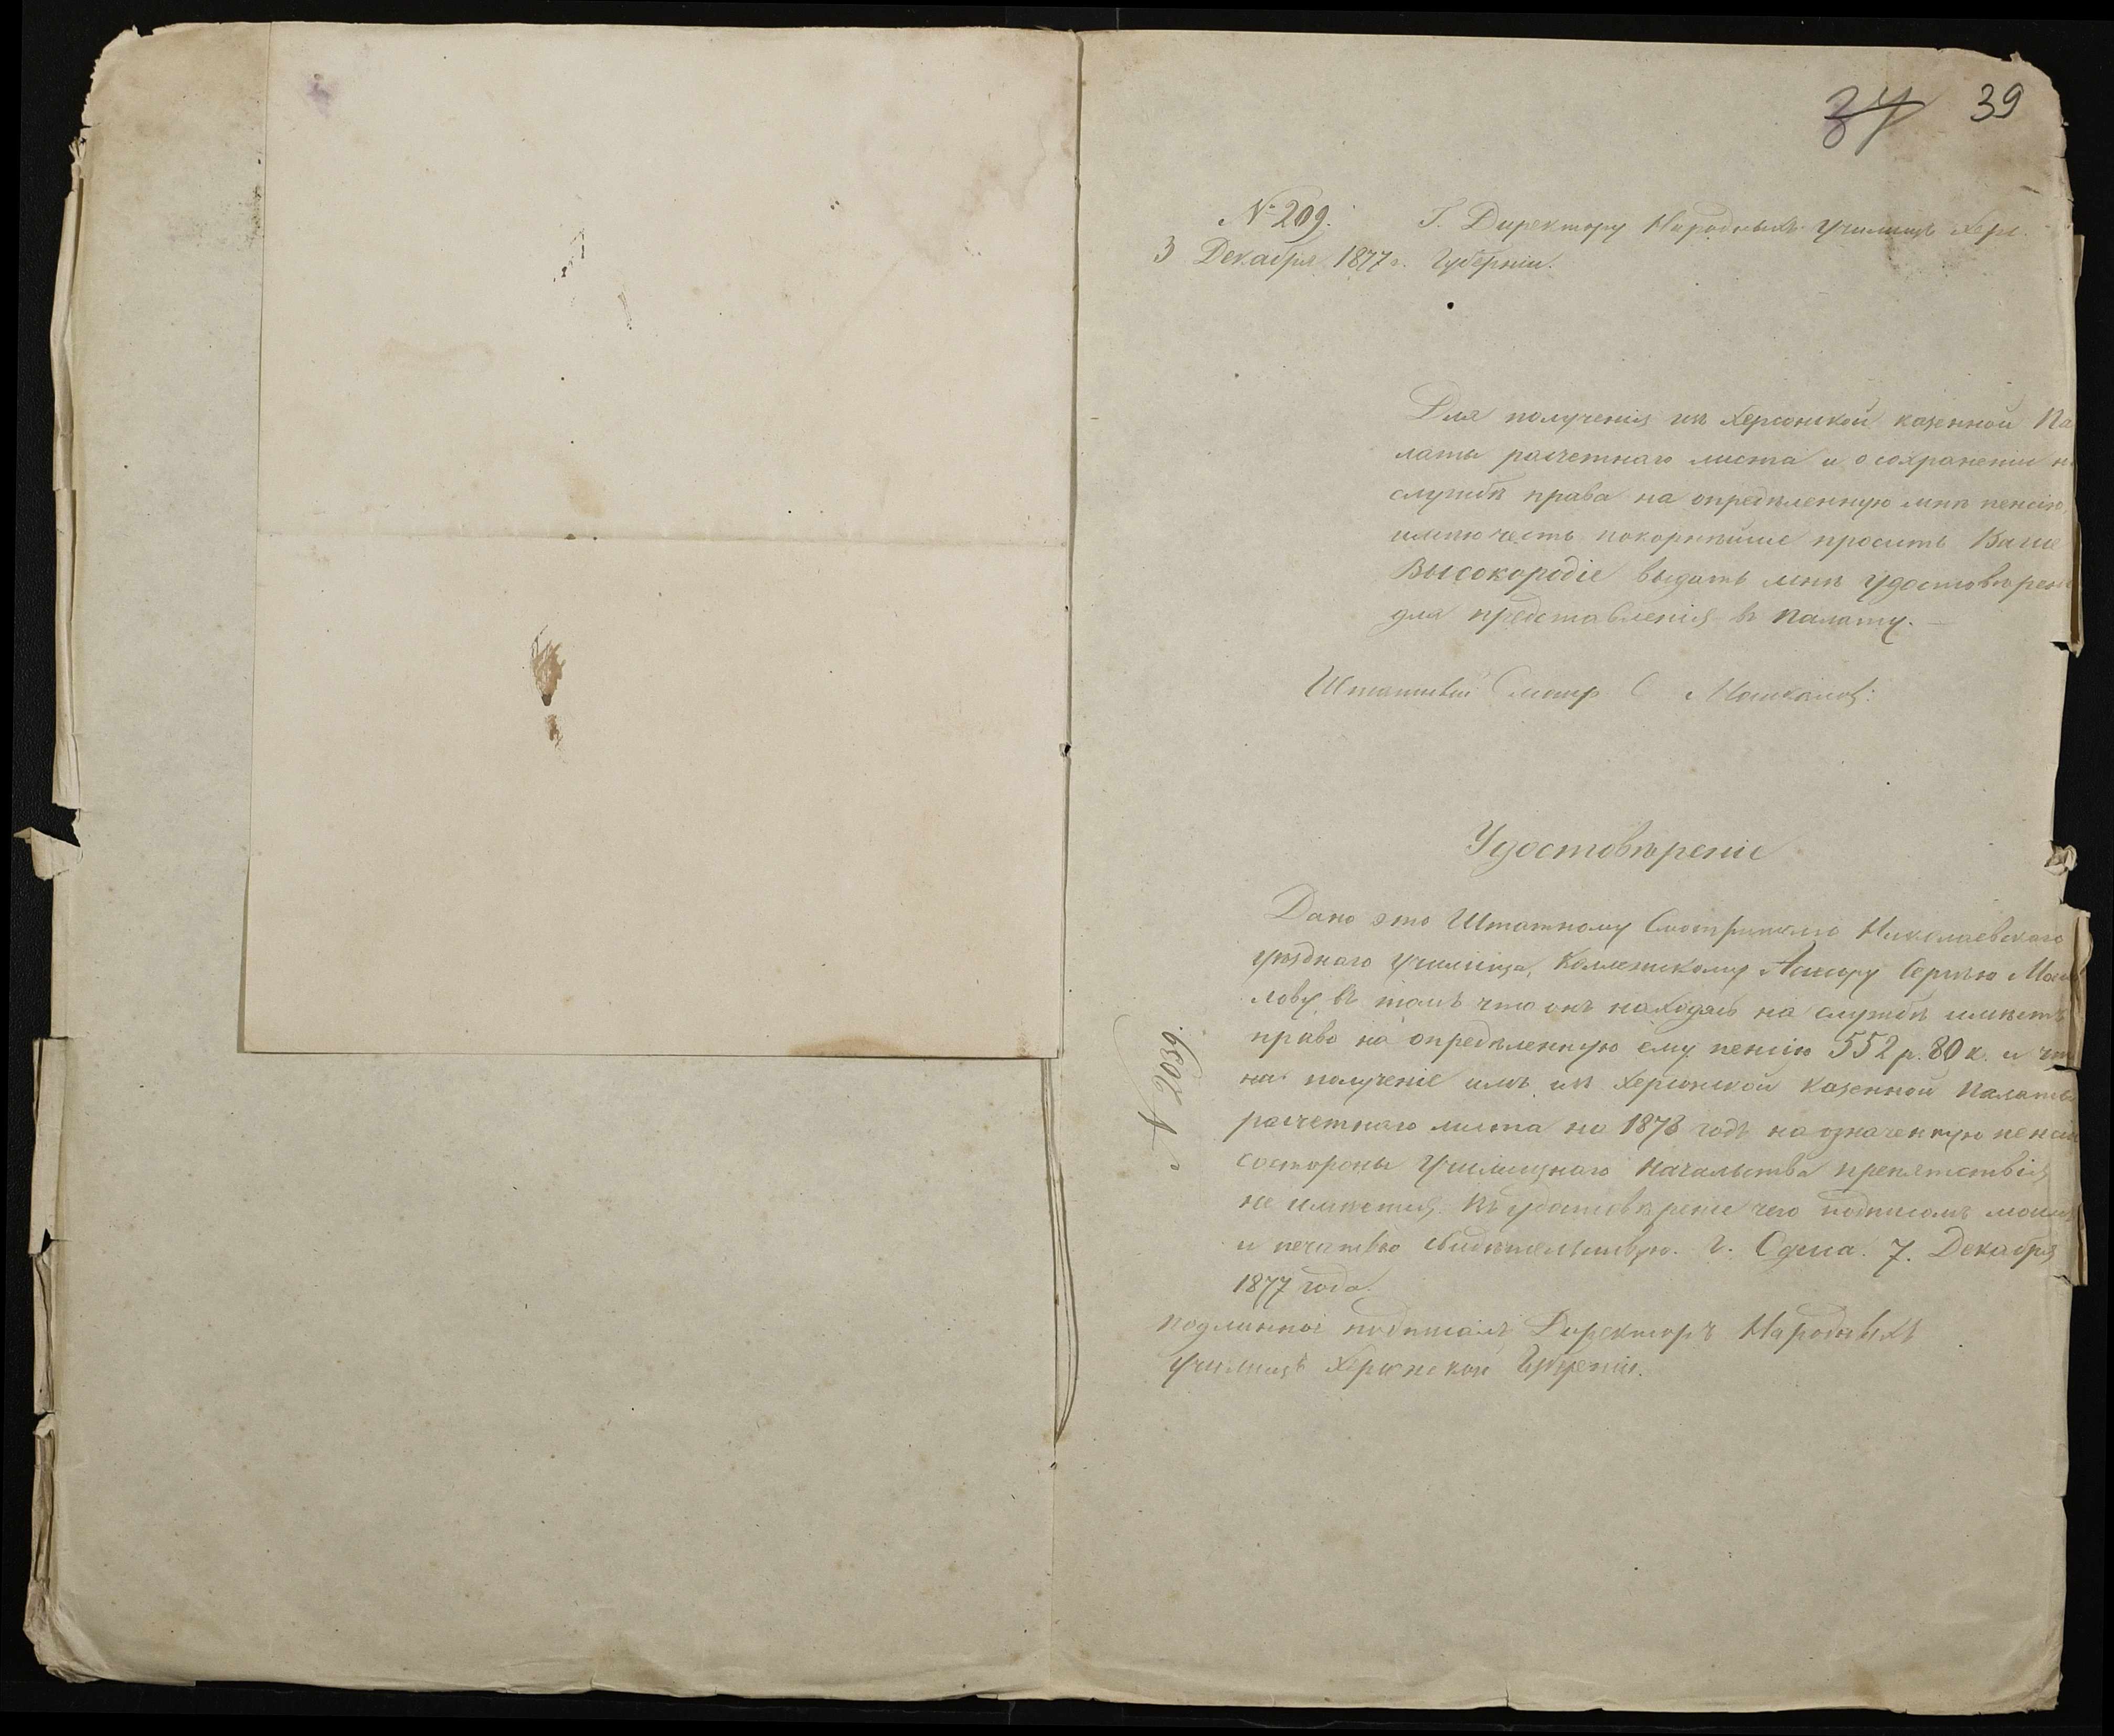 37 39
№ 209. Г. Директору Народныхъ Училищъ Херс.
3 Декабря 1877 г. Губерніи.
Для полученія изъ Херсонской казенной Па
латы расчетнаго листа и о сохраненіи н
службѣ права на опредѣленную мнѣ пенсію,
имѣю честь покорнѣйше просить Ваше
Высокородіе выдать мнѣ удостовѣрені
для представленія въ Палату. —
Штатный Смотр С
Удостовѣреніе
Дано это Штатному Смотрителю Николаевскаго
уѣзднаго училища, Коллежскому Асесору Сергѣю
лову въ томъ что онъ находясь на службѣ имѣетъ
право на опредѣленную ему пенсію 552 р. 80 к. и что
на полученіе имъ изъ Херсонской казенной Палаты
расчетнаго листа на 1878 годъ на означенную пенсію
состороны Училищнаго Начальства препятствія
не имѣется. Въ удостовѣреніе чего подписомъ моимъ
и печатью свидѣтельствую. г. Одесса. 7. Декабря
1877 года.
подлинное подписалъ Директоръ Народныхъ
Училищъ Херсонской Губерніи.
№ 2039